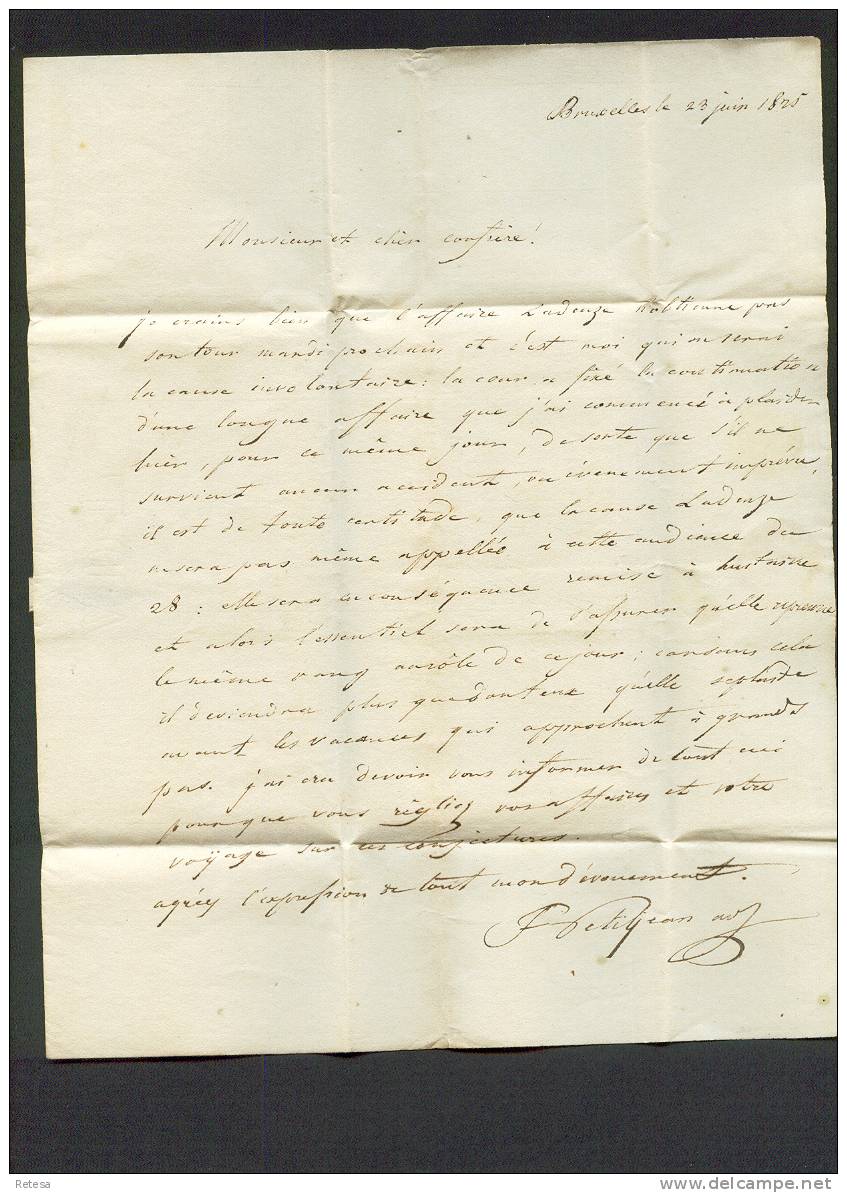 Bruxelles le 23 juin 1825
Monsieur et cher confrère!
je crains bien que l'affaire Ladeuze n'obtienne pas
son tour mardi prochain et c'est moi qui en serai
la cause involontaire : la cour a fixé la continuation
d'une longue affaire que j'ai commencé à plaider
hier, pour ce même jour, de sorte que s'il ne
survient aucun accident, ou évenement imprévu,
il est de toute certitude, que la cause Ladeuze
ne sera pas même appellée à cette audience du
28 : elle sera en conséquence remise à huitaine
et alors l'essentiel sera de s'assurer qu'elle reprenne
le même rang au rôle de ce jour ; car sans cela
il deviendra plus que douteux qu'elle se plaide
avant les vacances qui approchent à grands
pas. j'ai cru devoir vous informer de tout ceci
pour que vous régliez vos affaires et votre
voyage sur ces conjectures.
agréez l'expression de tout mon dévouement.
F Petitjean av
Retesa
delcampe.net